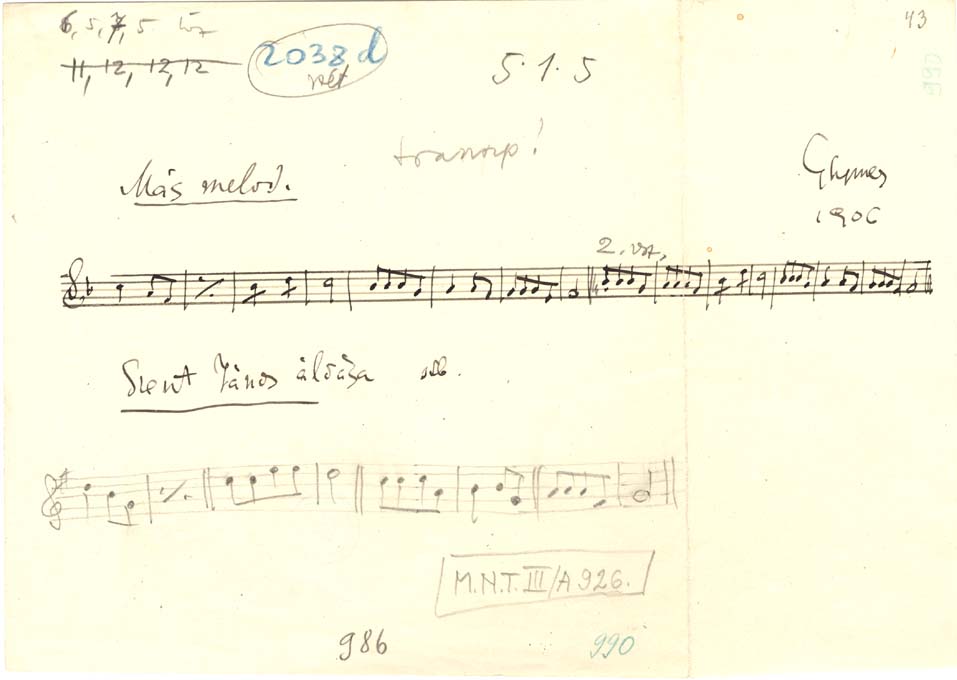 43
6, 5, 7, 5
11, 12, 12, 12
2038 d
5. 1. 5
990
transp!
Más melod.
Ghymes
1906
2. vsz.
Szent János áldása stb.
M.N.T. III/A 926.
986
990